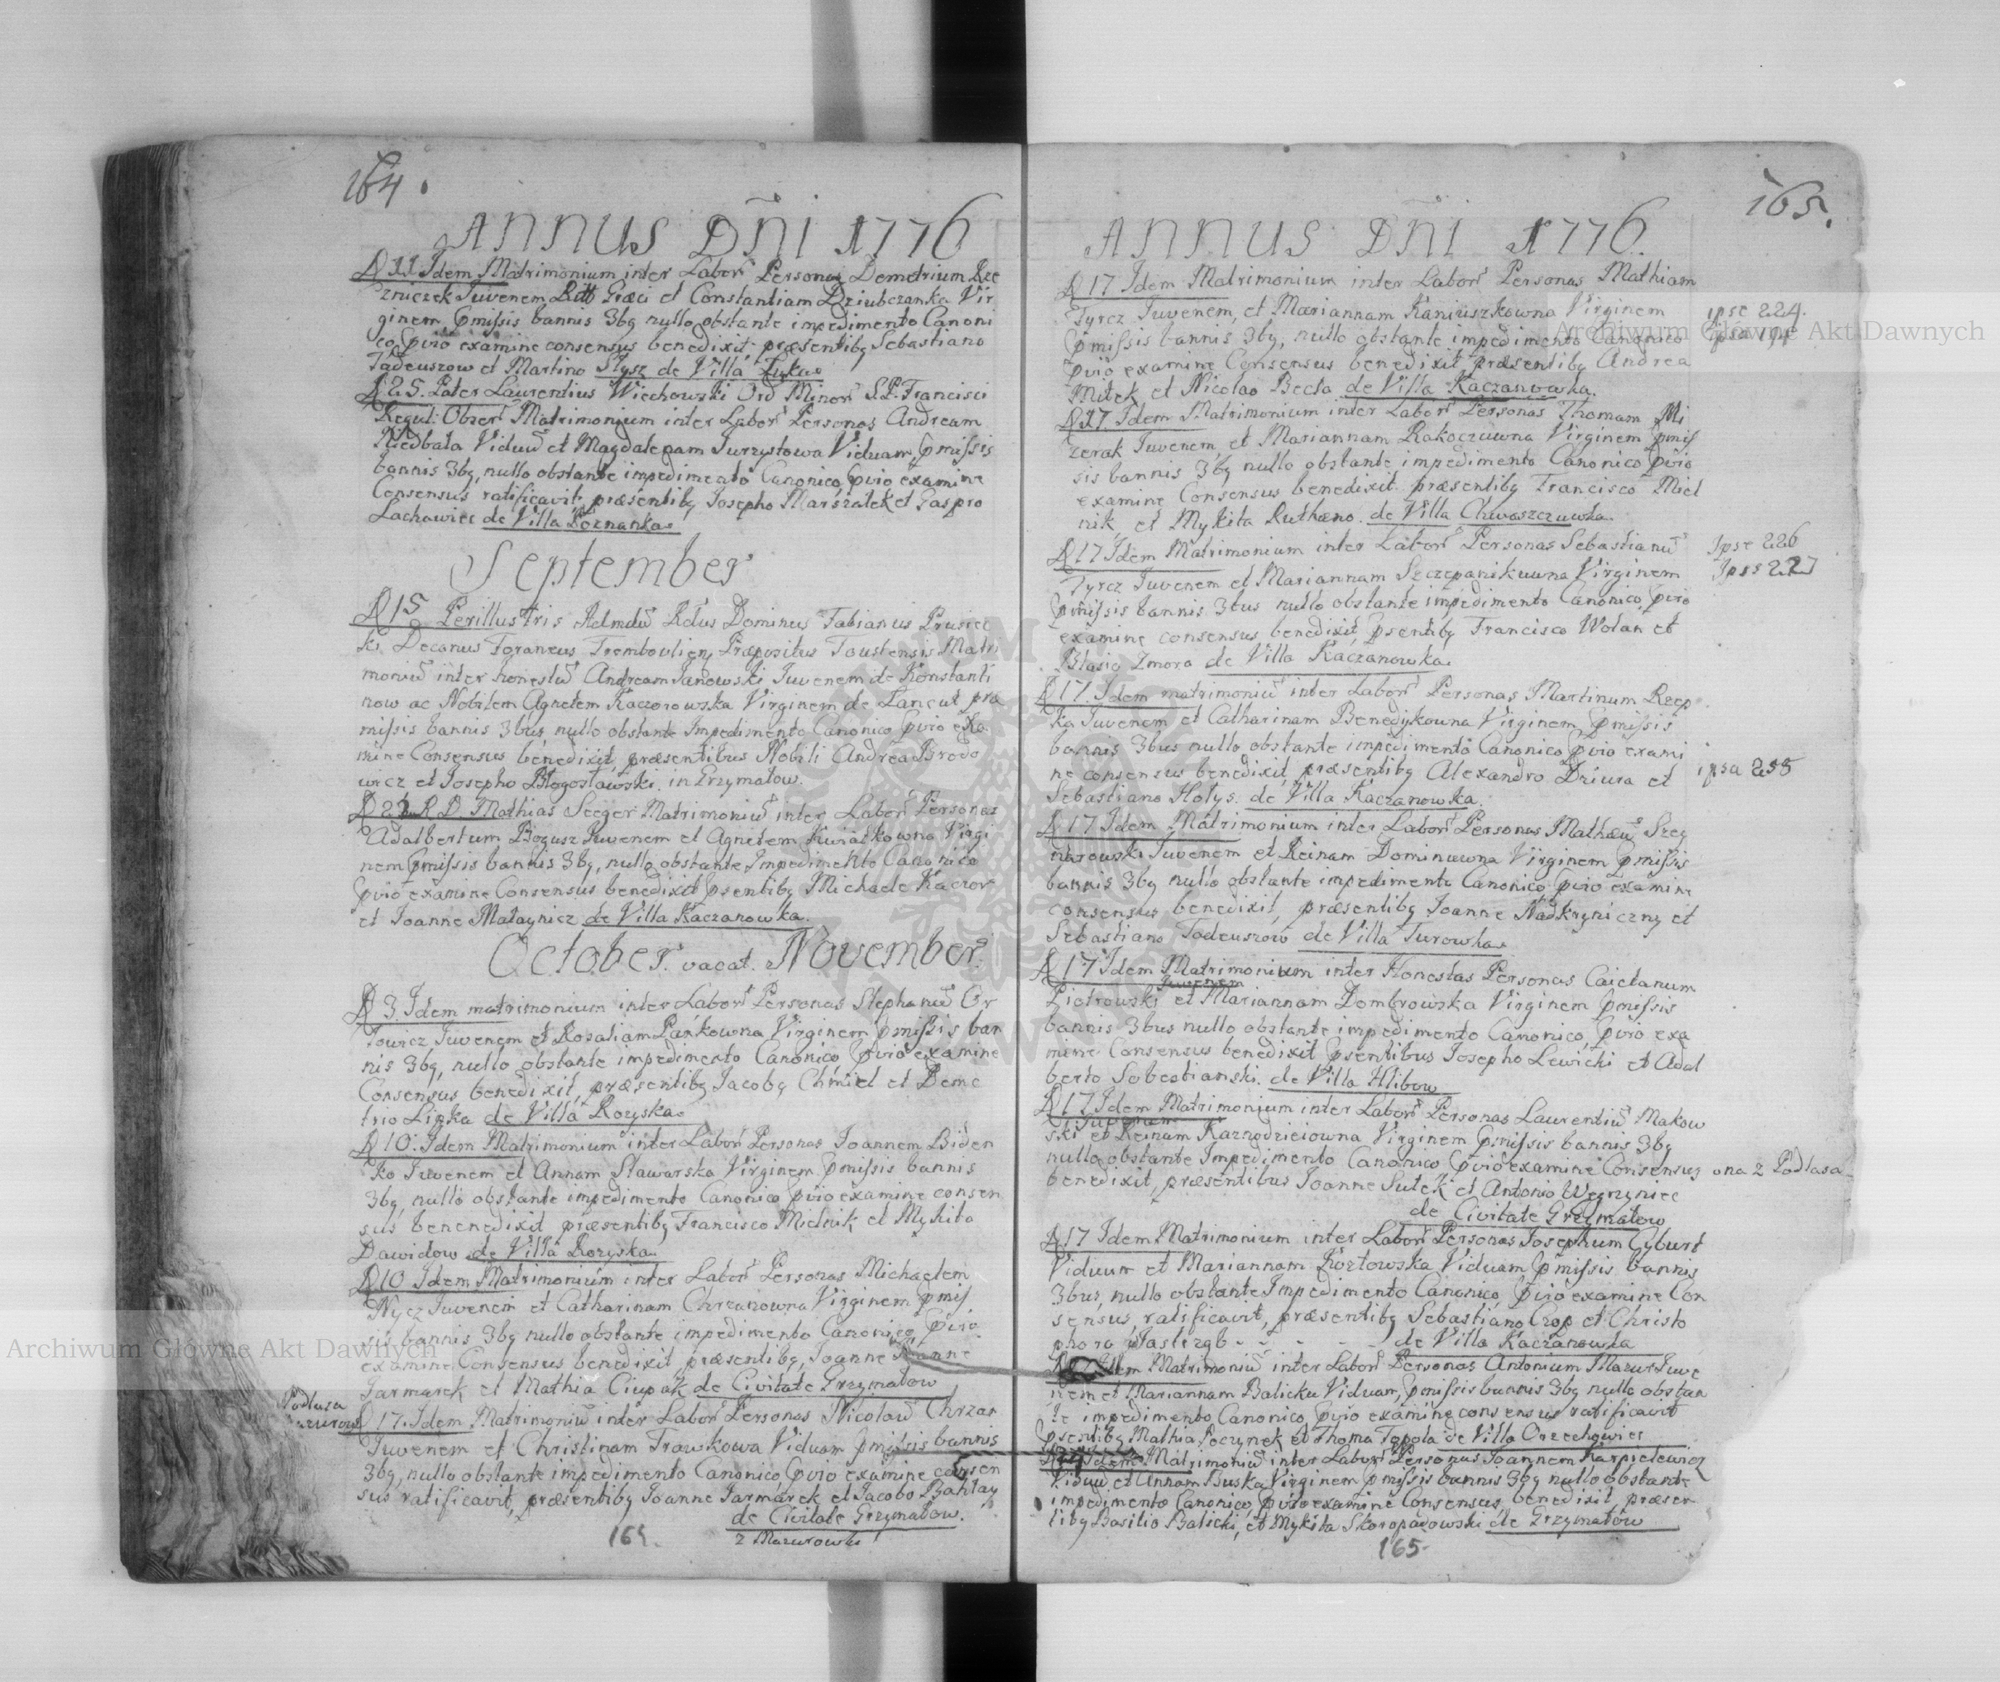 164.
ANNUS DÑI 1776
D 11 Idem Matrimonium inter Labor Personas Demetrium Rze
zniczek Juvenem Ritt Græci et Constantiam Dziubczanka Vir
ginem pmissis bannis 3bq nullo obstante impedimento Canoni
co pvio examine consensus benedixit præsentibq Sebastiano
Tadeuszow et Martino Słysz de Villa Łuka
D 25. Pater Laurentius Wiechowski Ord Minor S.P. Francisci
Regul: Obser Matrimonium inter Labor Personas Andream
Niedbała Viduū et Magdalenam Jurzystowa Viduam, pmissis
bannis 3bq, nullo obstante impedimento Canonico, pvio examine
Consensus ratificavit, præsentibq Josepho Marszałek et Gaspro
Lachowicz de Villa Poznanka
September
D 15 Perillustris Admdū Rdus Dominus Fabianus Prusiec
ki Decanus Foraneus Trembovlien, Præpositus Toustensis Matri
moniū inter honestū Andream Janowski Juvenem de Konstanti
now ac Nobilem Agnetem Kaczorowska Virginem de Łancut præ
missis bannis 3bus nullo obstante Impedimento Canonico pvio exa
mine Consensus benedixit, præsentibus Nobili Andrea Brodo
wicz et Josepho Błogosławski in Grzymałow.
D 22 R D Mathias Seeger Matrimoniū inter Labor Personas
Adalbertum Bogusz Juvenem et Agnetem Kwiatkowna Virgi
nem pmissis bannis 3bq, nullo obstante Impedimento Canonico
pvio examine Consensus benedixit psentibq Michaele Kaczor
et Joanne Matagnicz de Villa Kaczanowka.
October. vacat. November.
D 3 Idem matrimonium inter Labor Personas Stephanū Or
łowicz Juvenem et Rosaliam Pankowna Virginem pmissis ban
nis 3bq, nullo obstante impedimento Canonico, pvio examine
Consensus benedixit, præsentibq Jacobq Chmiel et Deme
trio Lipka de Villa Rozyska
D 10. Idem Matrimonium inter Labor Personas Joannem Biden
ko Juvenem et Annam Sławarska Virginem pmissis bannis
3bq, nullo obstante impedimento Canonico pvio examine consen
sus benenedixit præsentibq Francisco Mielnik et Mykita
Dawidow de Villa Rozyska
D 10 Idem Matrimonium inter Labor Personas Michaelem
Nycz Juvenem et Catharinam Chrzanowna Virginem pmis
sis bannis 3bq nullo obstante impedimento Canonico, pvio
examine Consensus benedixit, præsentibq, Joanne
Jarmarek et Mathia Ciupak de Civitate Grzymałow
Podlasa
D 17. Idem Matrimoniū inter Labor Personas Nicolaū Chrzan
Juvenem et Christinam Trawkowa Viduam pmissis bannis
3bq, nullo obstante impedimento Canonico, pvio examine consen
sus ratificavit, præsentibq Joanne Jarmarek et Jacobo Bahtay
de Civitate Grzymałow.
z Mazurowki
164.
165.
ANNUS DÑI 1776.
D 17 Idem Matrimonium inter Labor Personas Mathiam
Tyrcz Juvenem, et Mariannam Kaniuszkowna Virginem
pmissis bannis 3bq, nullo obstante impedimento Canonico
pvio examine Consensus benedixit præsentibq Andrea
Mitek et Nicolao Becta de Villa Kaczanowka.
ipse 224.
ipsa 191
D 17. Idem Matrimonium inter Labor Personas Thomam Mi
zerak Juvenem et Mariannam Rakoczuwna Virginem pmis
sis bannis 3bq nullo obstante impedimento Canonico pvio
examine Consensus benedixit præsentibq Francisco Miel
nik et Mykita Ruthæno de Villa Chwaszczuwka
D 17 Idem Matrimonium inter Labor Personas Sebastianū
Tyrcz Juvenem et Mariannam Szczepanikuwna Virginem
pmissis bannis 3bus nullo obstante impedimento Canonico, pvio
examine consensus benedixit, psentibq Francisco Wolan et
Blasio Zmora de Villa Kaczanowka
Ipse 226
Ipsa 227
D 17. Idem matrimoniū inter Labor Personas Martinum Rzep
ka Juvenem et Catharinam Benedykowna Virginem, pmissis
bannis 3bus nullo obstante impedimento Canonico pvio exami
ne consensus benedixit, præsentibq Alexandro Dziura et
Sebastiano Hołys. de Villa Kaczanowka.
ipsa 255
D 17 Idem Matrimonium inter Labor Personas Mathæū Szeg
narowski Juvenem et Reinam Dominuwna Virginem pmissis
bannis 3bq nullo obstante impedimento Canonico, pvio examine
consensus benedixit, præsentibq Joanne Nadkryniczny et
Sebastiano Tadeuszow de Villa Turowka.
D 17 Idem Matrimonium inter Honestas Personas Caietanum
Juvenem
Piotrowski et Mariannam Dombrowska Virginem pmissis
bannis 3bus nullo obstante impedimento Canonico, pvio exa
mine Consensus benedixit psentibus Josepho Lewicki et Adal
berto Sebestianski. de Villa Hlibow
D 17 Idem Matrimonium inter Labor Personas Laurentiū Makow
Juvenem
ski et Reinam Kaznodzieiowna Virginem pmissis bannis 3bq
nullo obstante Impedimento Canonico pvio examine Consensus ona z Podlasa
benedixit, præsentibus Joanne Sutek et Antonio Węgrzyniec
de Civitate Grzymałow
D 17 Idem Matrimonium inter Labor Personas Josephum Cyburt
Viduum et Mariannam Kozłowska Viduam pmissis bannis
3bus, nullo obstante Impedimento Canonico pvio examine Con
sensus, ratificavit, præsentibq Sebastiano Crop et Christo
phoro Jastrząb - - - - de Villa Kaczanowka
Idem Matrimoniū inter Labor Personas Antonium Mazur Juve
nem et Mariannam Balicku Viduam, pmissis bannis 3bq nullo obstan
te impedimento Canonico, pvio examine consensus ratificavit
psentibq Mathia Poczynek et Thoma Topola de Villa Orzechowiec
Idem Matrimoniū inter Labor Personas Joannem Karpielewicz
Viduū et Annam Buska Virginem pmissis bannis 3bq nullo obstante
impedimento Canonico, pvio examine Consensus benedixit, præsen
tibq Basilio Balicki, et Mykita Skoropadowski de Grzymałow
165.
Archiwum Główne Akt Dawnych
Archiwum Główne Akt Dawnych
ARCHIWUM GŁÓWNE AKT DAWNYCH